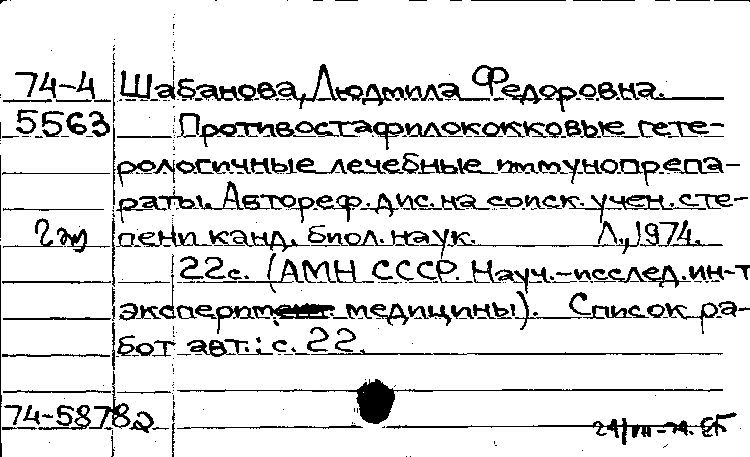 74-4 Шабанова, Людмила Федоровна.
5563 Противостафилококковые гете-
рологичные лечебные иммунопрепа-
раты. Автореф. дис. на соиск. учен. сте-
2 эк пени канд. биол. наук. Л., 1974.
22 с. (АМН СССР. Науч.-исслед. ин-т
эксперим. медицины). Список ра-
бот авт.: с. 22.
74-58782
24/VII-74.